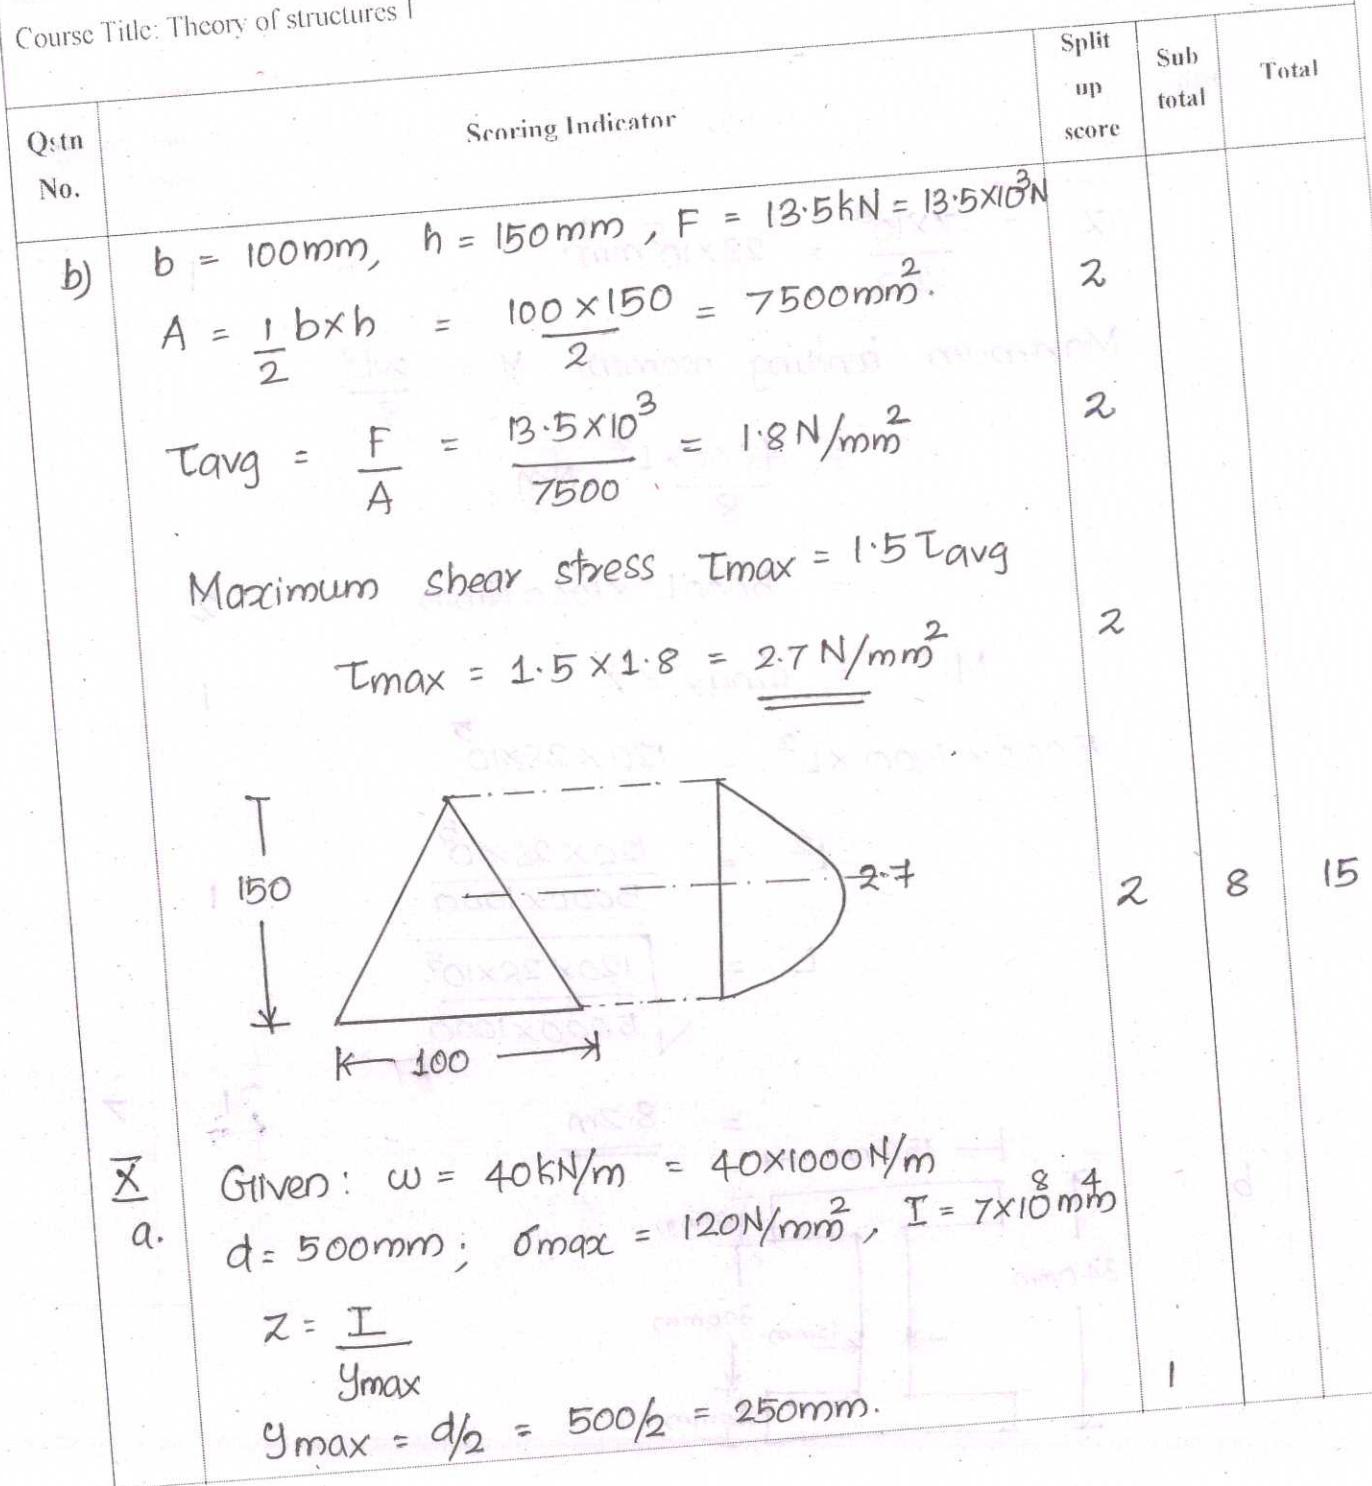 Course Title: Theory of structures I
Qstn No.
Scoring Indicator
Split up score
Sub total
Total
b) b = 100mm, h = 150mm, F = 13.5kN = 13.5×10³N
A = 1/2 b×h = 100×150/2 = 7500mm². 2
τavg = F/A = 13.5×10³/7500 = 1.8N/mm² 2
Maximum shear stress τmax = 1.5τavg
τmax = 1.5×1.8 = 2.7N/mm² 2
150
2.7
2 8 15
100
X Given: w = 40kN/m = 40×1000N/m
a. d = 500mm; σmax = 120N/mm², I = 7×10⁸mm⁴
Z = I/ymax
ymax = d/2 = 500/2 = 250mm. 1